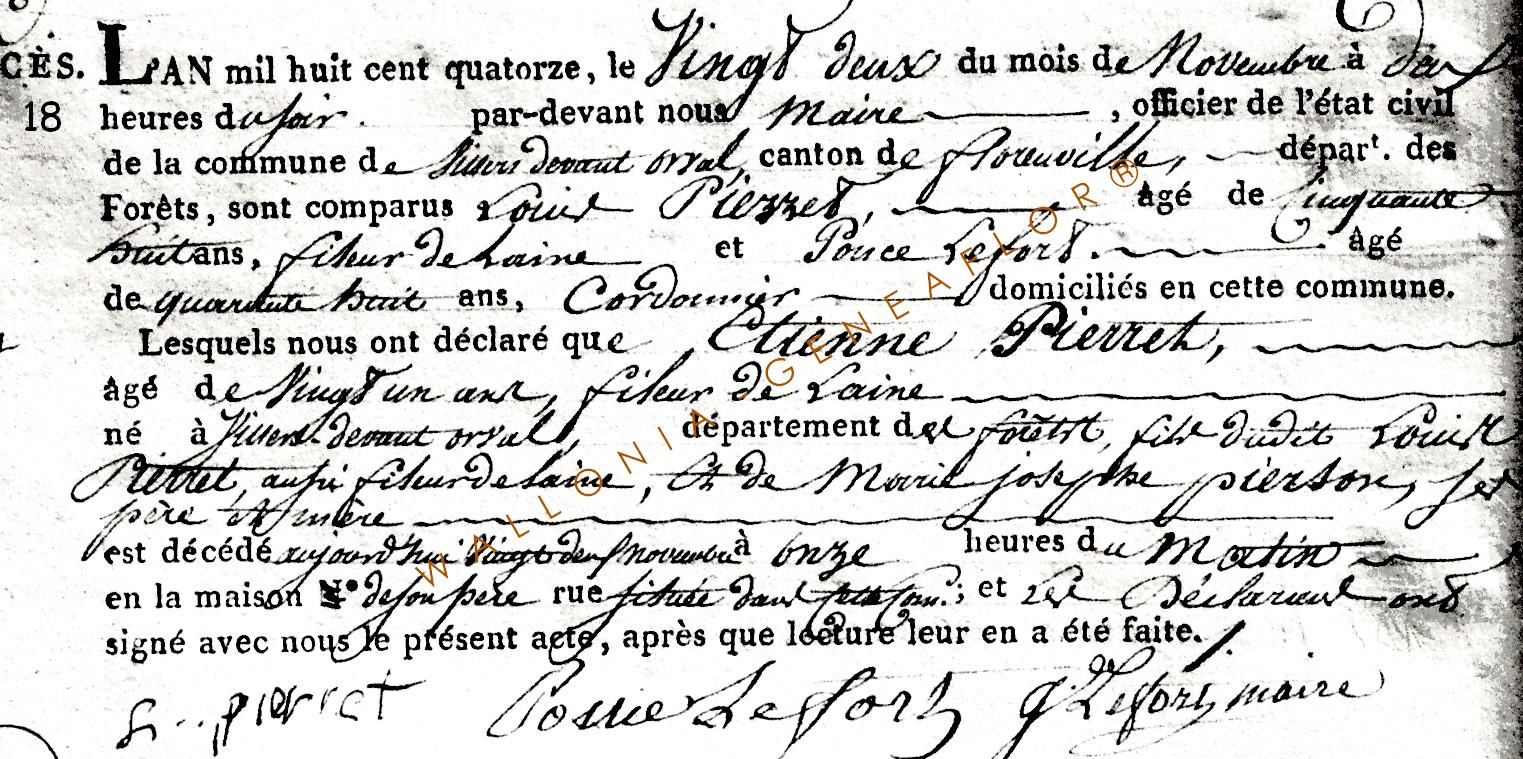 CÈS. L'AN mil huit cent quatorze, le Vingt deux du mois de Novembre à deux
18 heures du soir. par-devant nous Maire, officier de l'état civil
de la commune de Villers devant orval, canton de florenville, départ. des
Forêts, sont comparus Louis Pierret, âgé de Cinquante
huit ans, fileur de Laine et Ponce Lefort. âgé
de quarante huit ans, Cordonnier domiciliés en cette commune.
Lesquels nous ont déclaré que Etienne Pierret,
âgé de Vingt un ans, fileur de Laine
né à Villers devant orval, département des forêts, fils dudit Louis
Pierret, aussi fileur de laine, Et de Marie josephe pierson, ses
père et mère
est décédé aujourd'hui Vingt deux novembre à onze heures du Matin
en la maison N° de son père rue située dans ; et Les Déclarans ont
signé avec nous le présent acte, après que lecture leur en a été faite.
pierret Ponce Lefort Lefort, maire
WALLONIA-GENEAFLOR®